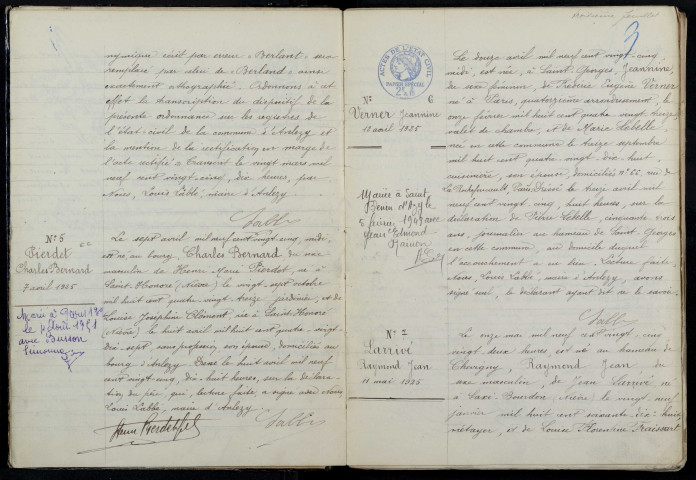 nymicieux écrit par erreur « Berlant » sera
remplacé par celui de « Berland » ainsi
exactement othographié. Ordonnons à cet
effet la transcription du dispositif de la
présente ordonnance sur les registres de
l'état-civil de la commune d'Anlezy et
la mention de la rectification en marge de
l'acte rectifié. Transcrit le vingt mars mil
neuf cent vingt-cinq, dix heures, par
Nous, Louis Labbé, maire d'Anlezy.
Labbé
N° 5
Pierdet
Charles Bernard
7 avril 1925
Marié à Paris 13e
le février 1951
avec Busson
Simonne
Le sept avril mil neuf cent vingt cinq, midi,
est né, au bourg, Charles Bernard du sexe
masculin de Henri Marie Pierdet, né à
Saint Honoré (Nièvre) le vingt sept octobre
mil huit cent quatre vingt seize, jardinier, et de
Lucie Joséphine Clément, née à Saint Honoré
(Nièvre) le huit avril mil huit cent quatre-vingt-
dix-sept, sans profession, son épouse, domiciliés au
bourg d'Anlezy. Dressé le huit avril mil neuf
cent vingt cinq, dix-huit heures, sur la déclara-
tion du père qui, lecture faite, a signé avec Nous,
Louis Labbé, maire d'Anlezy.
Henri Pierdet Labbé
3
ACTES DE L'ÉTAT CIVIL
PAPIER SPÉCIAL
N° 6
Verner Jeannine
12 avril 1925
Mariée à Saint
Benin d'Azy le
8 février 1947 avec
Jean Edmond
Le douze avril mil neuf cent vingt-cinq,
midi, est née, à Saint-Georges, Jeannine
du sexe féminin, de Frédéric Eugène Verner
né à Paris, quatorzième arrondissement, le
onze février mil huit cent quatre vingt treize,
valet de chambre, et de Marie Lebelle
née en cette commune le treize septembre
mil huit cent quatre vingt-dix-huit,
cuisinière, son épouse, domiciliés N° 66, rue de
La Rochefoucault, Paris. Dressé le treize avril mil
neuf cent vingt cinq, huit heures, sur la
déclaration de Pierre Lebelle, cinquante trois
ans, journalier au hameau de Saint Georges
en cette commune, au domicile duquel
l'accouchement a eu lieu. Lecture faite
Nous, Louis Labbé, maire d'Anlezy, avons
signé seul, le déclarant ayant dit ne le savoir.
Labbé
N° 7
Larrivé
Raymond Jean
11 mai 1925
Le onze mai mil neuf cent vingt-cinq
vingt deux heures, est né au hameau de
Raymond Jean du
sexe masculin, de Jean Larrivé né
à Saxi-Bourdon (Nièvre) le vingt neuf
janvier mil huit cent soixante dix-huit,
métayer, et de Louise Florentine Fraissart